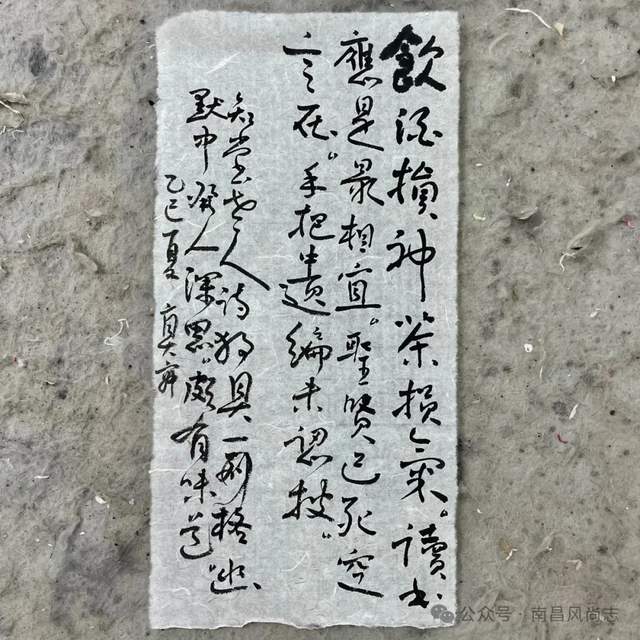 飲酒損神茶損氣。讀書
應是最相宜。聖賢已死空
言在。手把遺編未認披。
知堂老人诗别具一格幽
默中發人深思。頗有味道
乙巳夏
公众号 · 南昌风尚志